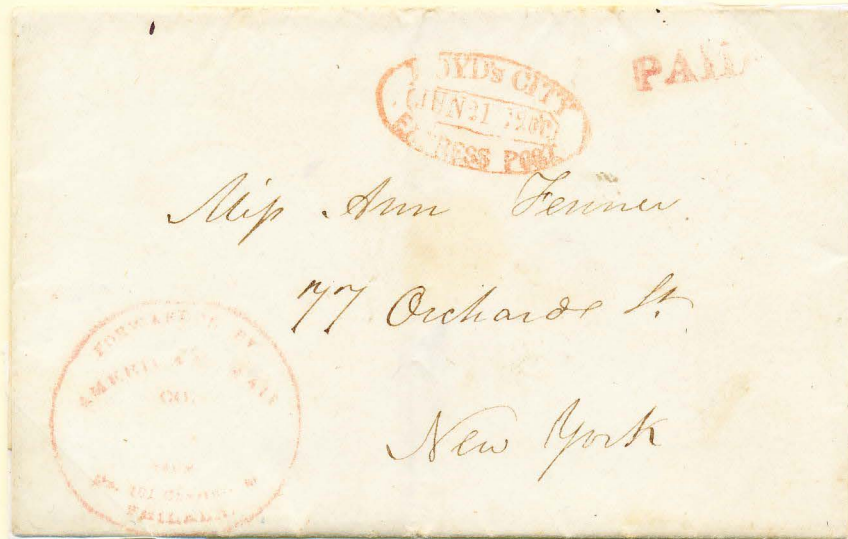 BOYD'S CITY
JUN 21
EXPRESS POST
PAID
Miss Ann Fenner
77 Orchard St.
New York
FORWARDED BY
AMERICAN MAIL
CO.
No. 101 Chesnut St
PHILADA.